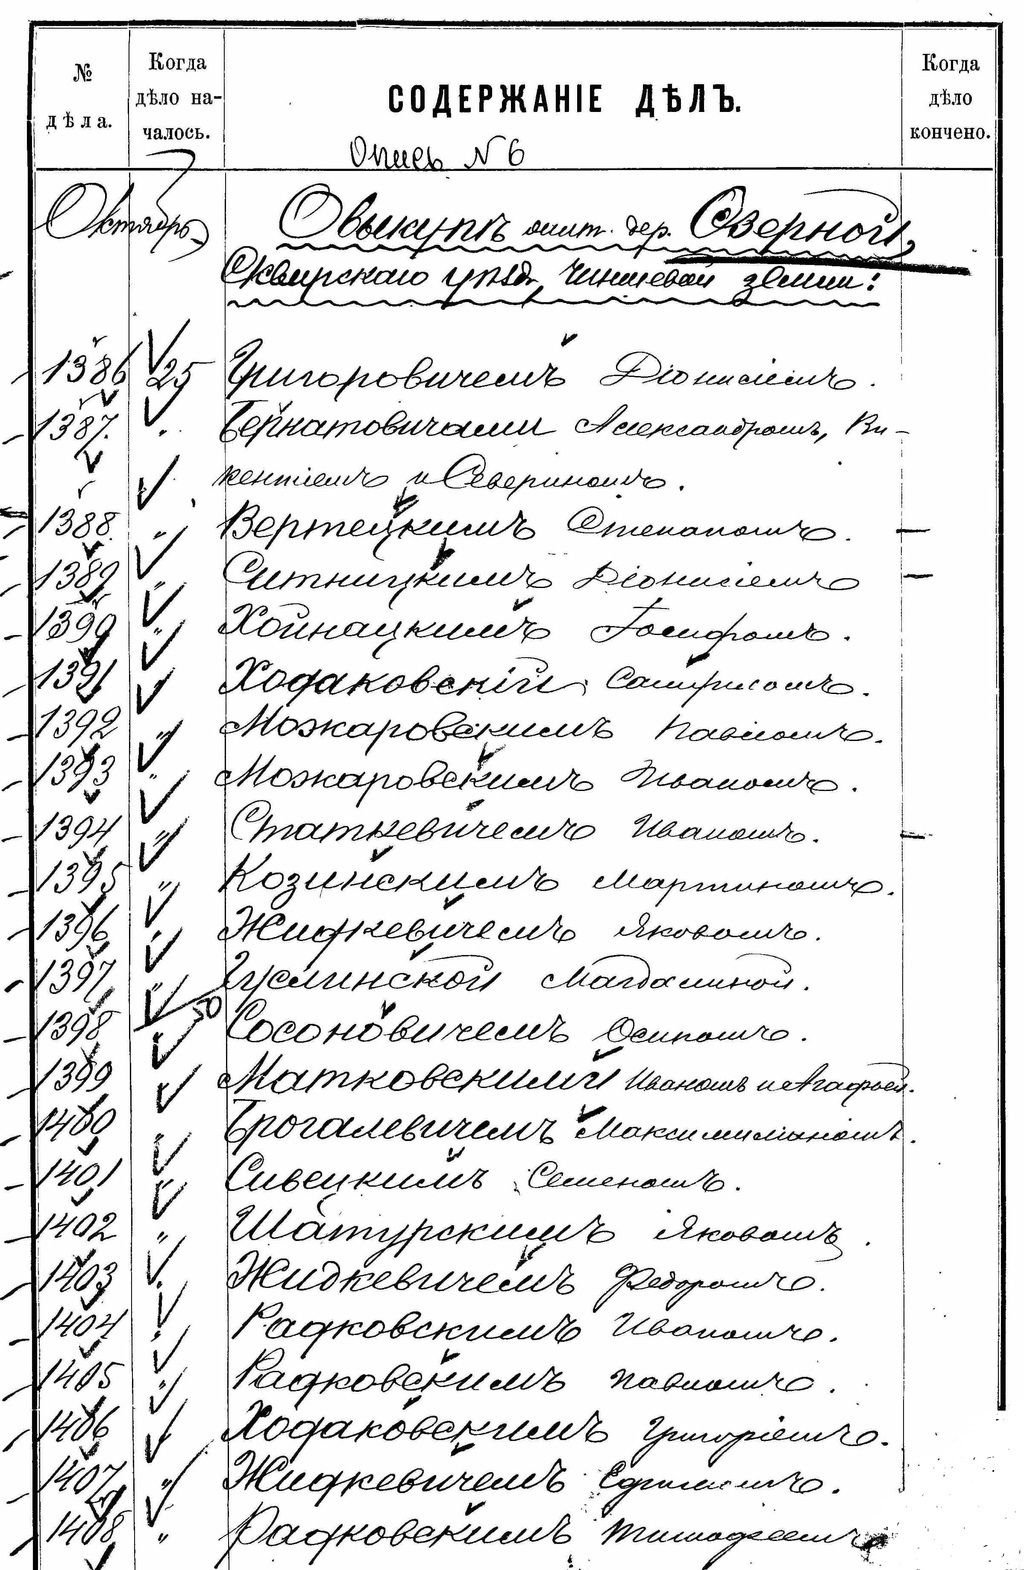 № дѣла.
Когда дѣло началось.
СОДЕРЖАНІЕ ДѢЛЪ.
Когда дѣло кончено.
Опись N 6
Октябрь
О выкупѣ жит. дер. Озерной,
Сквирскаго уѣзд. чиншевой земли:
1386 25 Григоровичемъ Діонисіемъ.
1387. Бернатовичами Александромъ, Ви-
кентіемъ и Севериномъ.
1388. " Вертецкимъ Степаномъ. —
1389 " Ситницкимъ Діонисіемъ —
1390 " Хойнацкимъ Іосифомъ.
1391 Ходаковскій
1392 " Можаровскимъ Павломъ.
1393 " Можаровскимъ Иваномъ.
1394 " Статкевичемъ Иваномъ. —
1395 " Козинскимъ Мартиномъ.
1396 " Жидкевичемъ Яковомъ.
1397 " Гуслинской Магдалиной.
1398 30 Сосоновичемъ Осипомъ.
1399 Матковскими Иваномъ и Агафьей.
1400 Брогалевичемъ Максимиліаномъ.
1401 Сивецкимъ Семеномъ.
1402 " Шатурскимъ Яковомъ.
1403 Жидкевичемъ Федоромъ.
1404 Радковскимъ Иваномъ.
1405 " Радковскимъ Павломъ.
1406 Ходаковскимъ Григоріемъ.
1407 " Жидкевичемъ Ефимомъ.
1408 " Радковскимъ Тимофеемъ